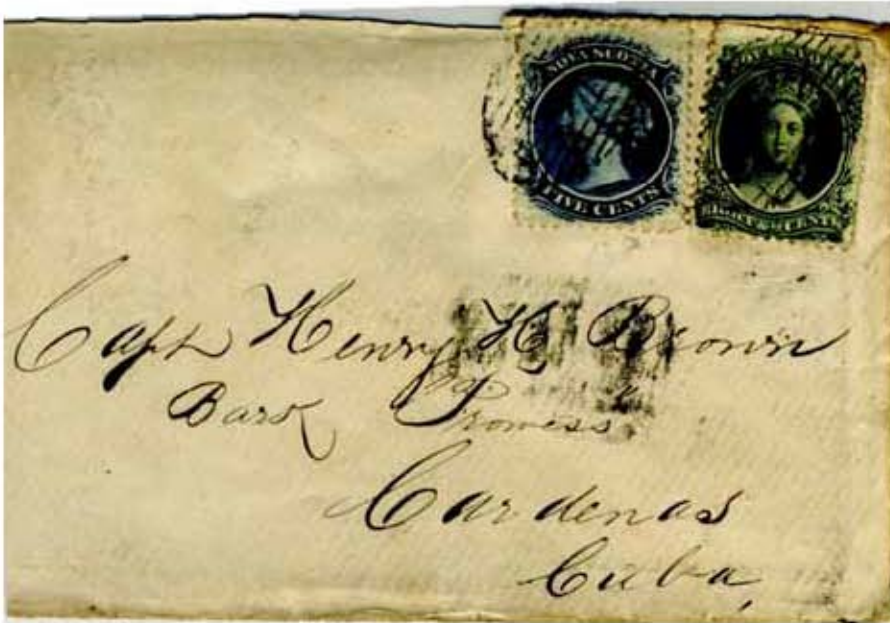 NOVA SCOTIA
FIVE CENTS
NOVA SCOTIA
EIGHT ½ CENTS
Capt Henry H Brown
Bark "Prowess"
Cardenas
Cuba,